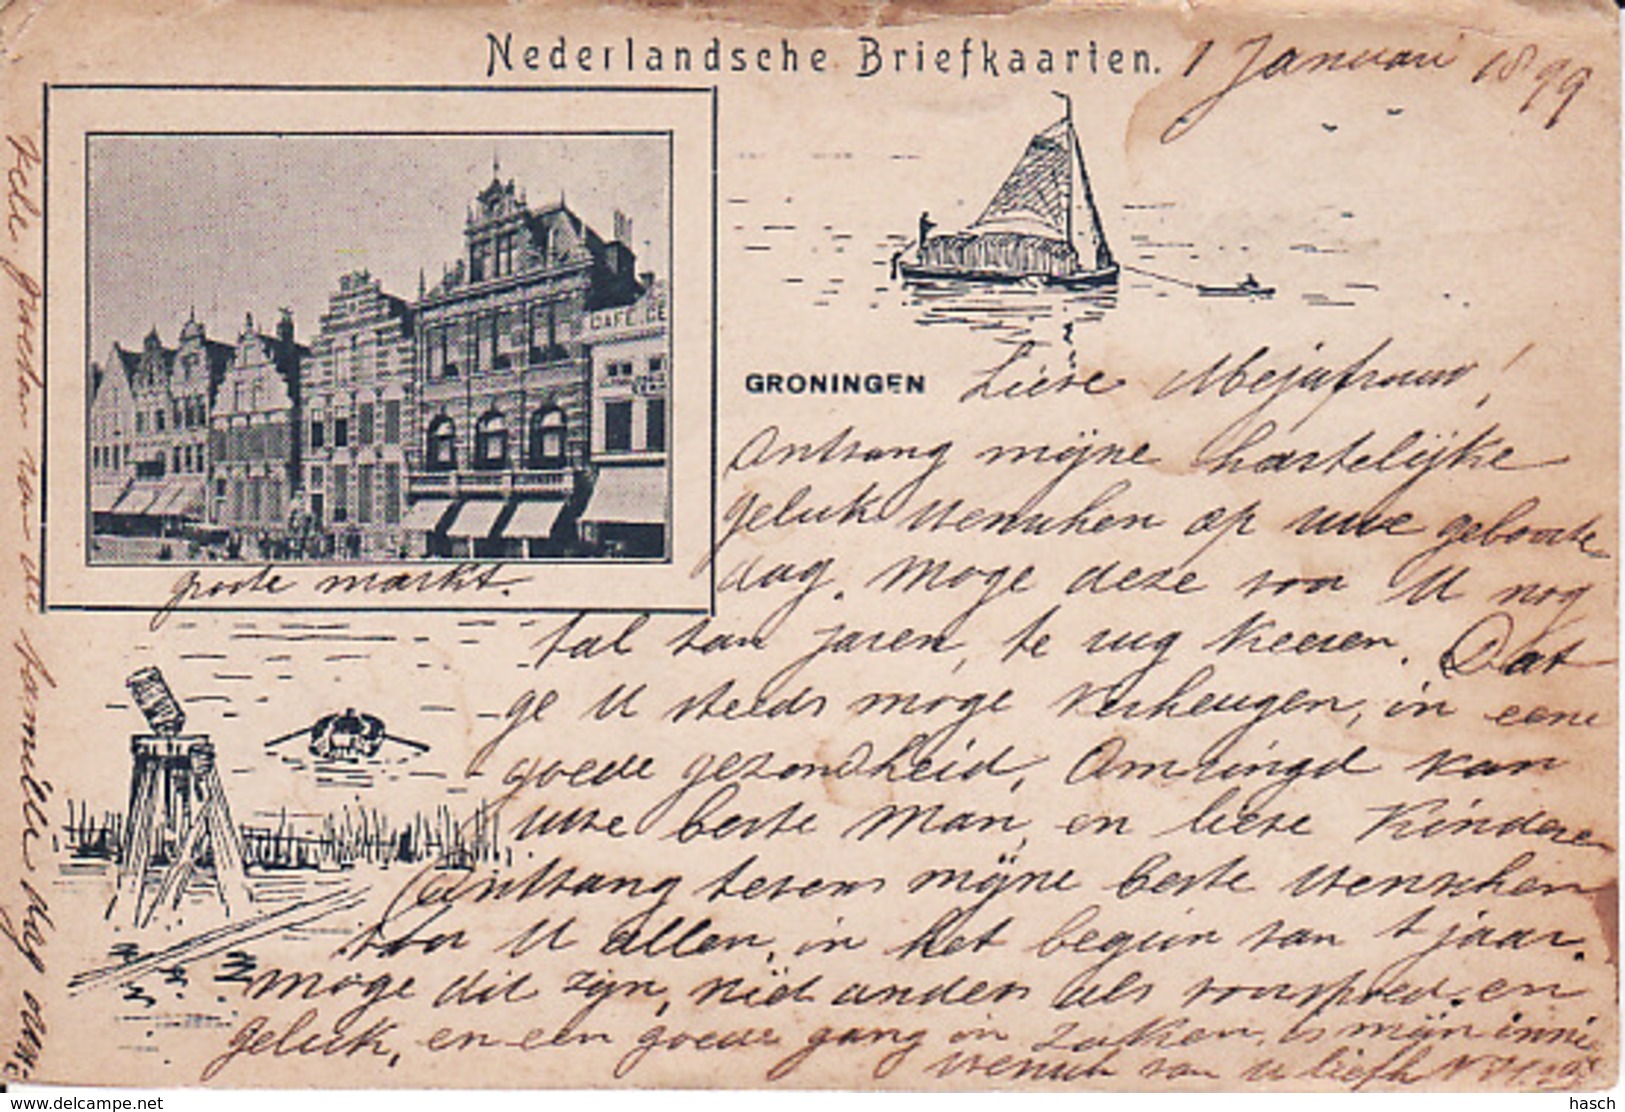 Nederlandsche Briefkaarten.
1 Januari 1899
CAFÉ DE
GRONINGEN
Lieve Mejufrouw!
Ontvang mijne hartelijke
geluk wenschen op uwe geboorte
dag. Moge deze voor U nog
tal van jaren, te rug keeren. Dat
ge U steeds moge verheugen, in eene
goede gezondheid, Omringd van
uwe beste Man, en lieve Kinderen
Ontvang tevens mijne beste wenschen
voor U allen, in het begin van 't jaar.
moge dit zijn, niet anders als voorspoed. en
geluk, en een goede gang in zaken, is mijn innige
wensch van U liefh
grote markt.
Vele groeten van de familie